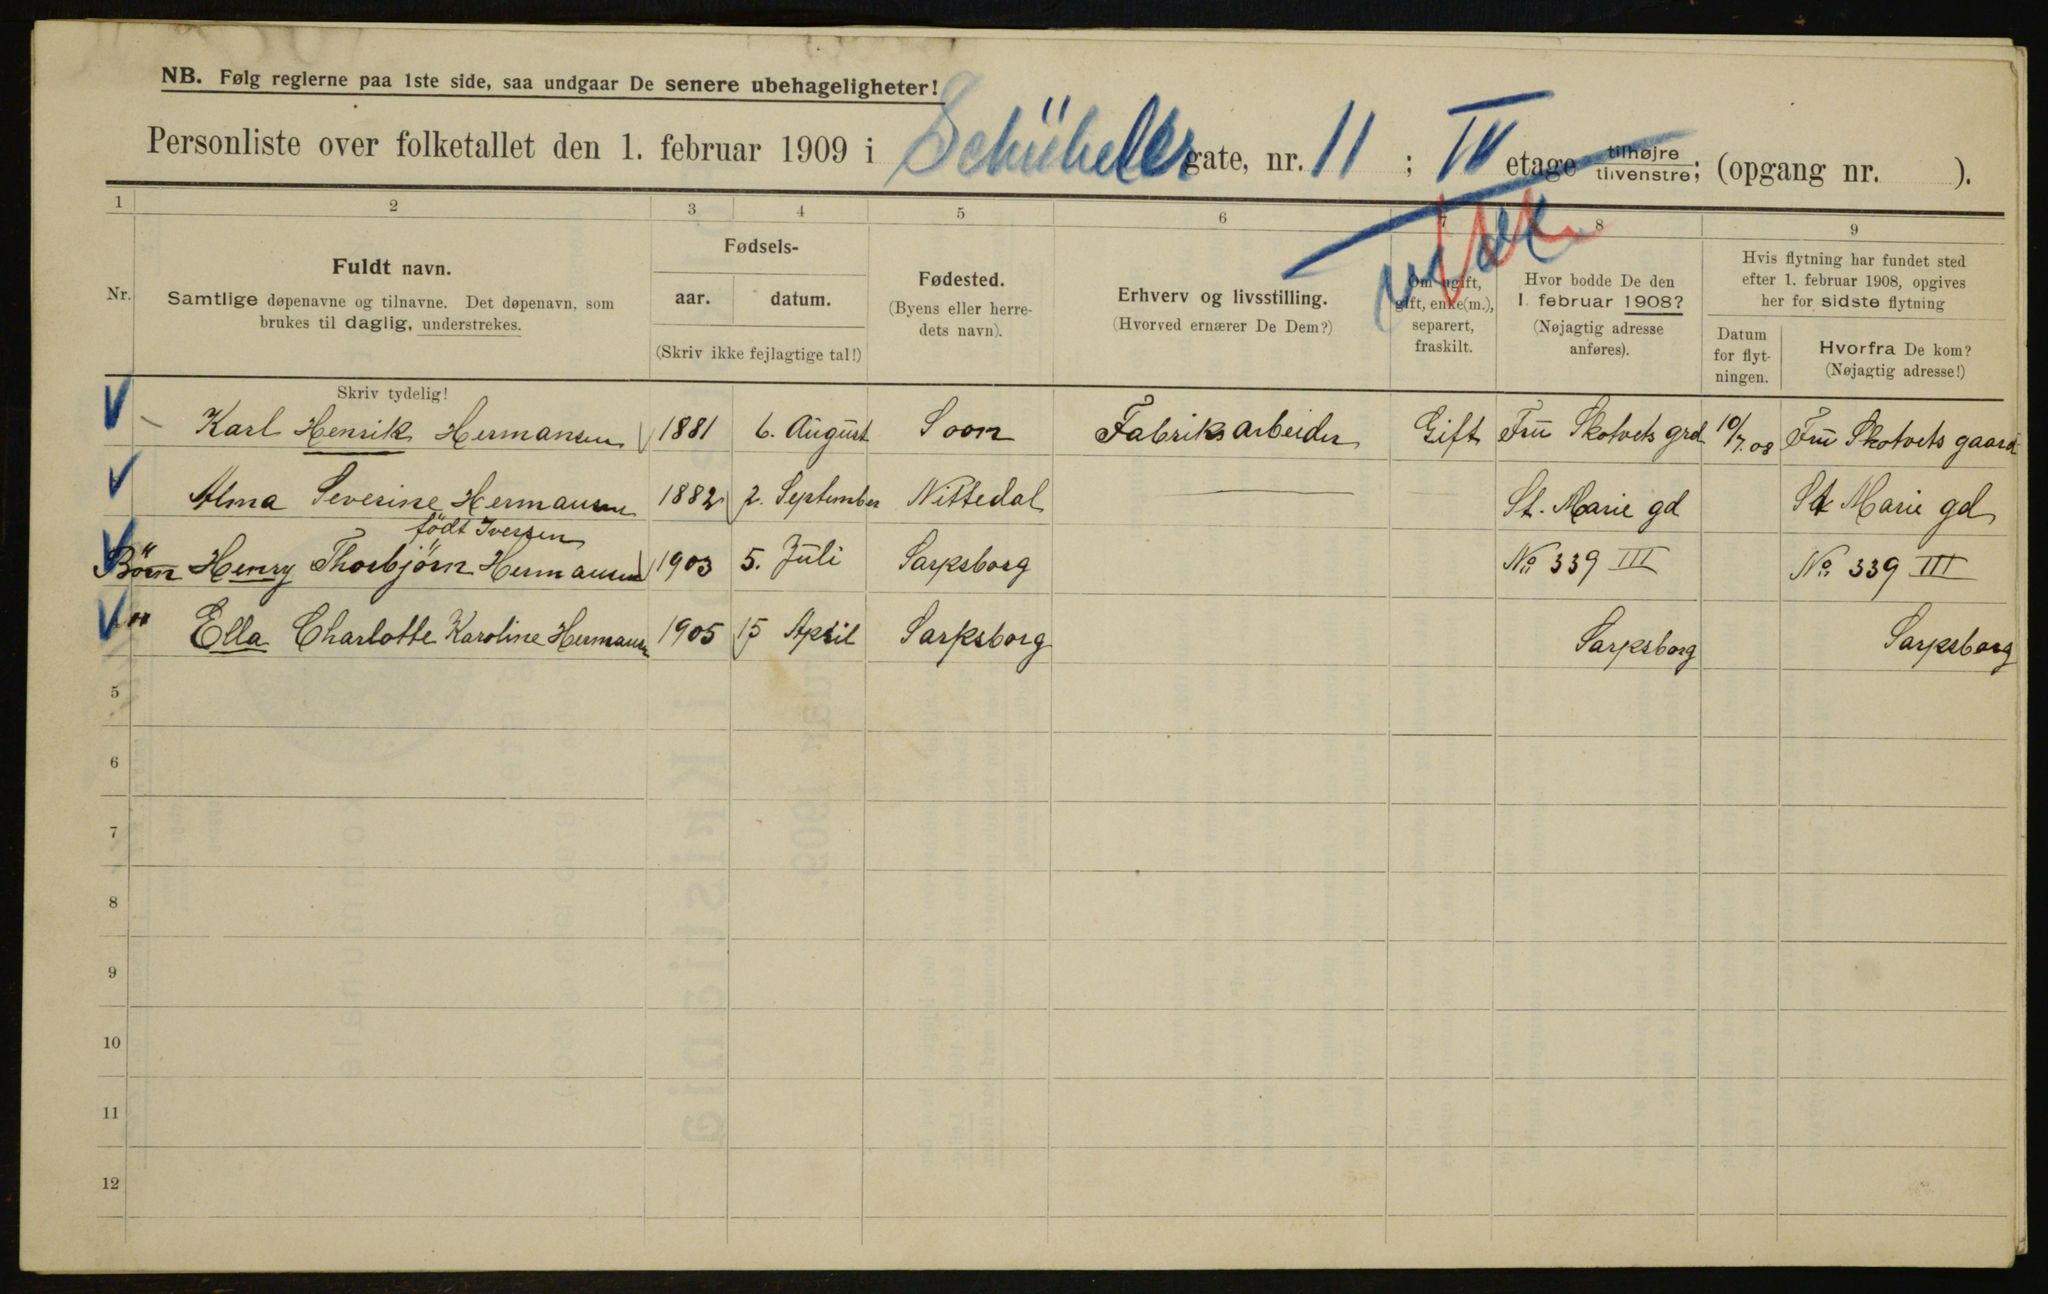 NB. Følg reglerne paa 1ste side, saa undgaar De senere ubehageligheter!
Personliste over folketallet den 1. februar 1909 i Schübeler gate, nr. 11 ; IV etage tilhøjre tilvenstre; (opgang nr. ).
1 2 3 4 5 6 7 8 9
Nr.
Fuldt navn.
Samtlige døpenavne og tilnavne. Det døpenavn, som
brukes til daglig, understrekes.
Fødsels-
aar. datum.
(Skriv ikke fejlagtige tal!)
Fødested.
(Byens eller herre-
dets navn).
Erhverv og livsstilling.
(Hvorved ernærer De Dem?)
Om ugift,
gift, enke(m.),
separert,
fraskilt.
Hvor bodde De den
1. februar 1908?
(Nøjagtig adresse
anføres).
Hvis flytning har fundet sted
efter 1. februar 1908, opgives
her for sidste flytning
Datum
for flyt-
ningen.
Hvorfra De kom?
(Nøjagtig adresse!)
Skriv tydelig!
Karl Henrik Hermansen 1881 6. August Soon Fabriksarbeider Gift Frü Skotvets grd 10/7.08 Frü Skotvets gaard
Alma Severine Hermansen 1882 2. September Nittedal St. Marie gd St Marie gd
födt Iversen
Börn Henry Thorbjörn Hermansen 1903 5. Juli Sarpsborg No 339 III No 339 III
" Ella Charlotte Karoline Hermansen 1905 15 April Sarpsborg Sarpsborg Sarpsborg
5
6
7
8
9
10
11
12